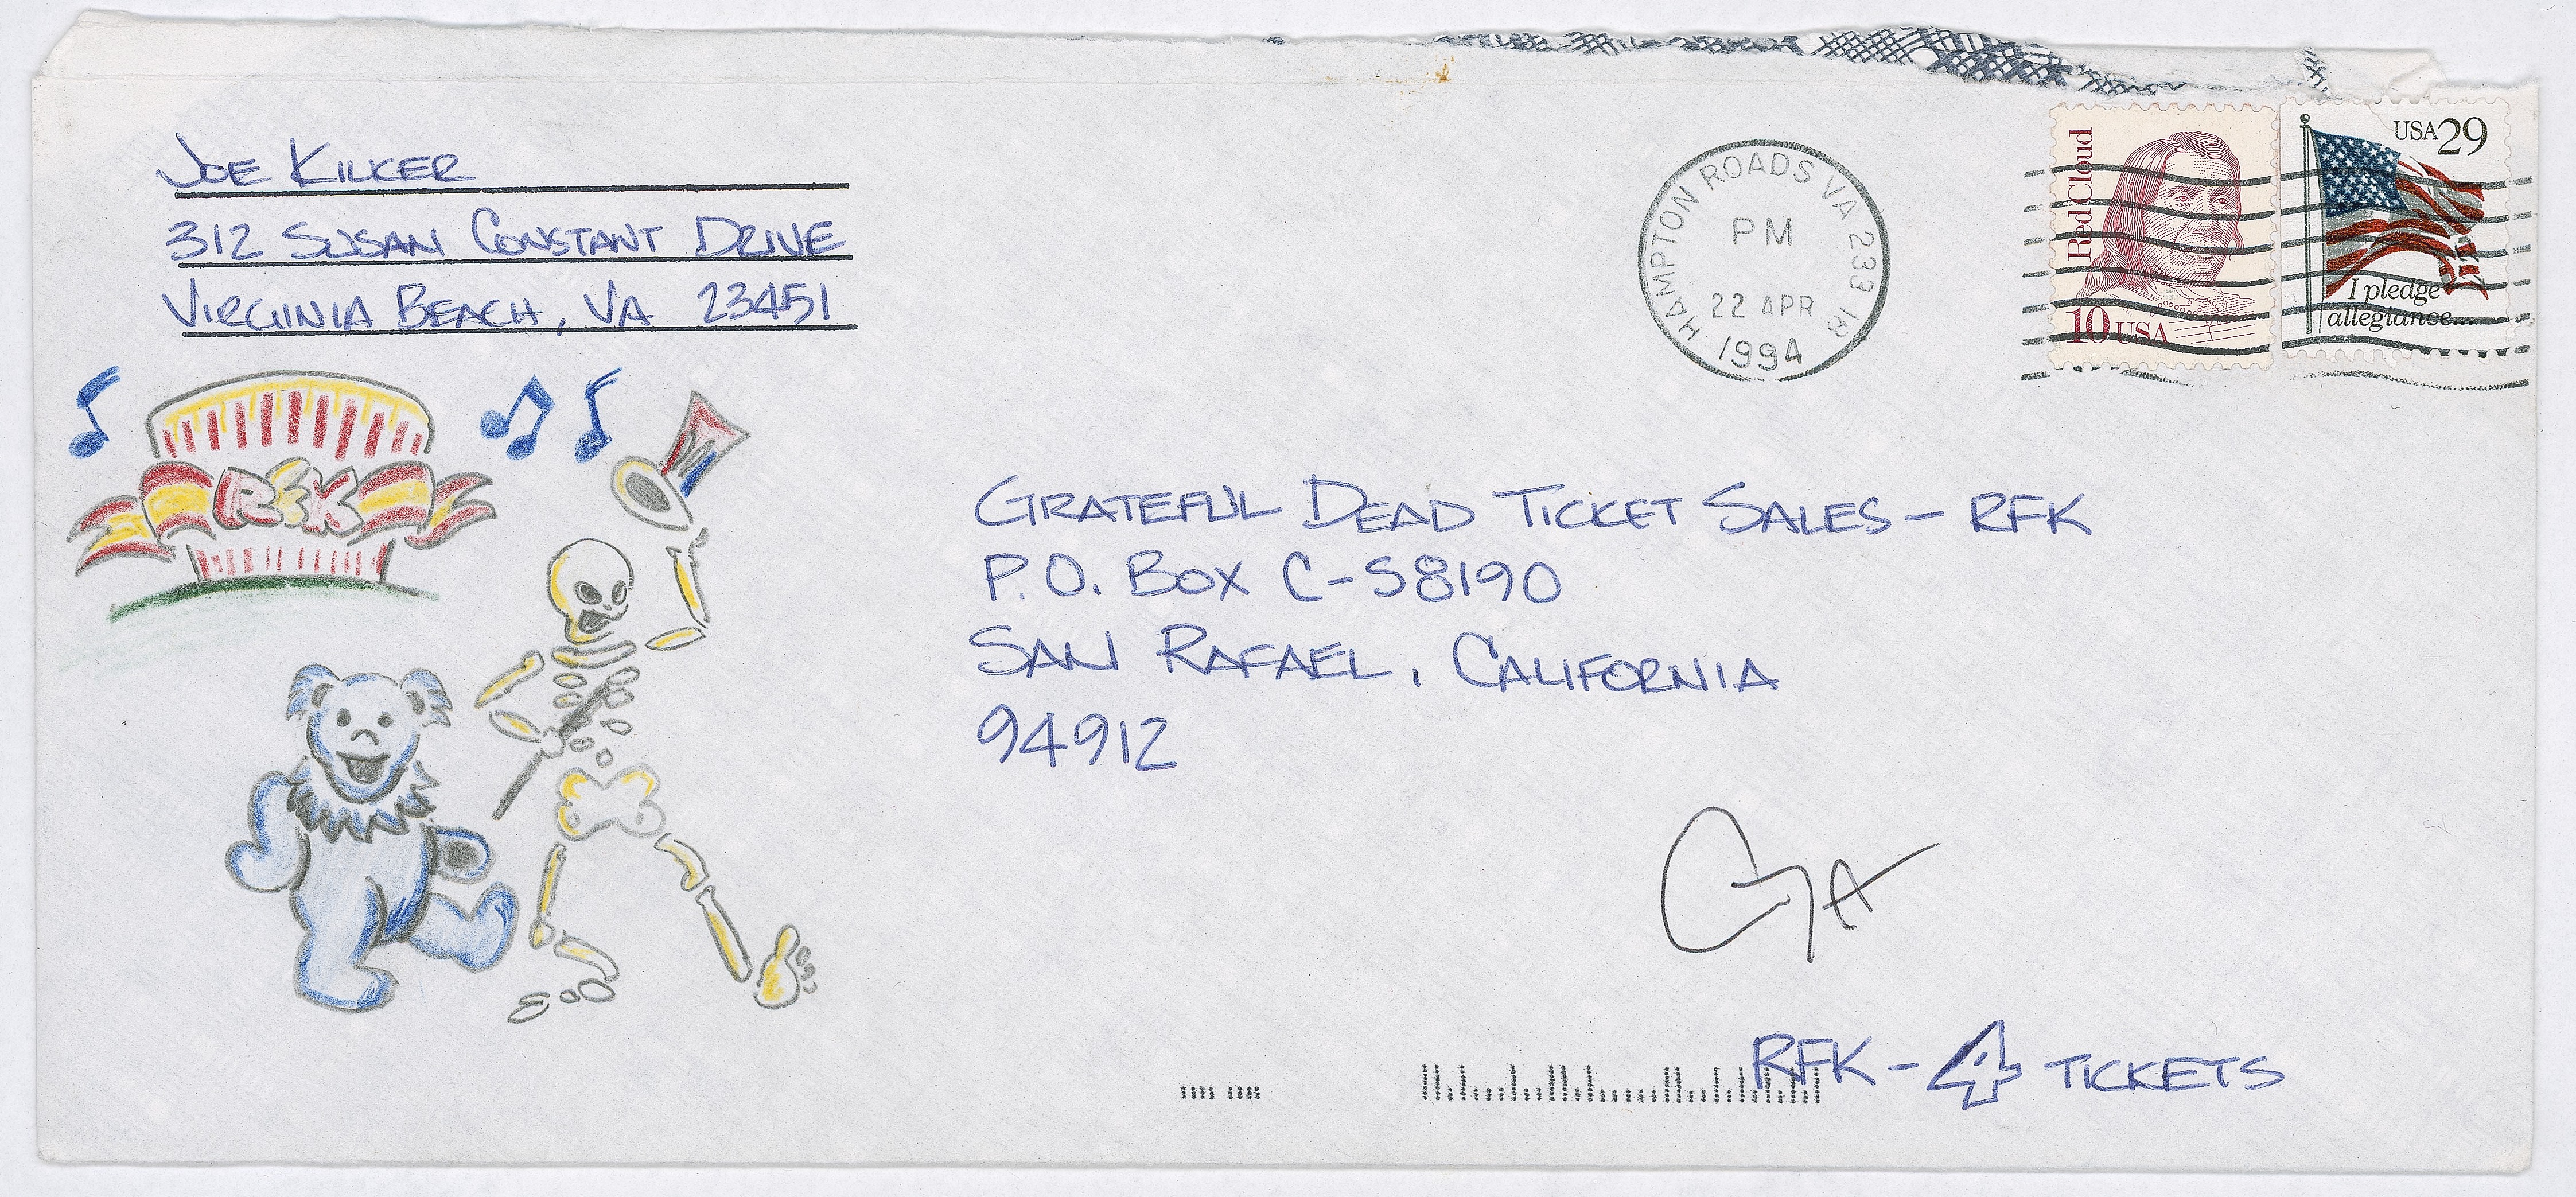 JOE KILKER
312 SUSAN CONSTANT DRIVE
VIRGINIA BEACH, VA 23451
HAMPTON ROADS VA 233 18
PM
22 APR
1994
Red Cloud
10 USA
USA 29
I pledge
allegiance...
RFK
GRATEFUL DEAD TICKET SALES - RFK
P.O. BOX C-S8190
SAN RAFAEL, CALIFORNIA
94912
RFK - 4 TICKETS